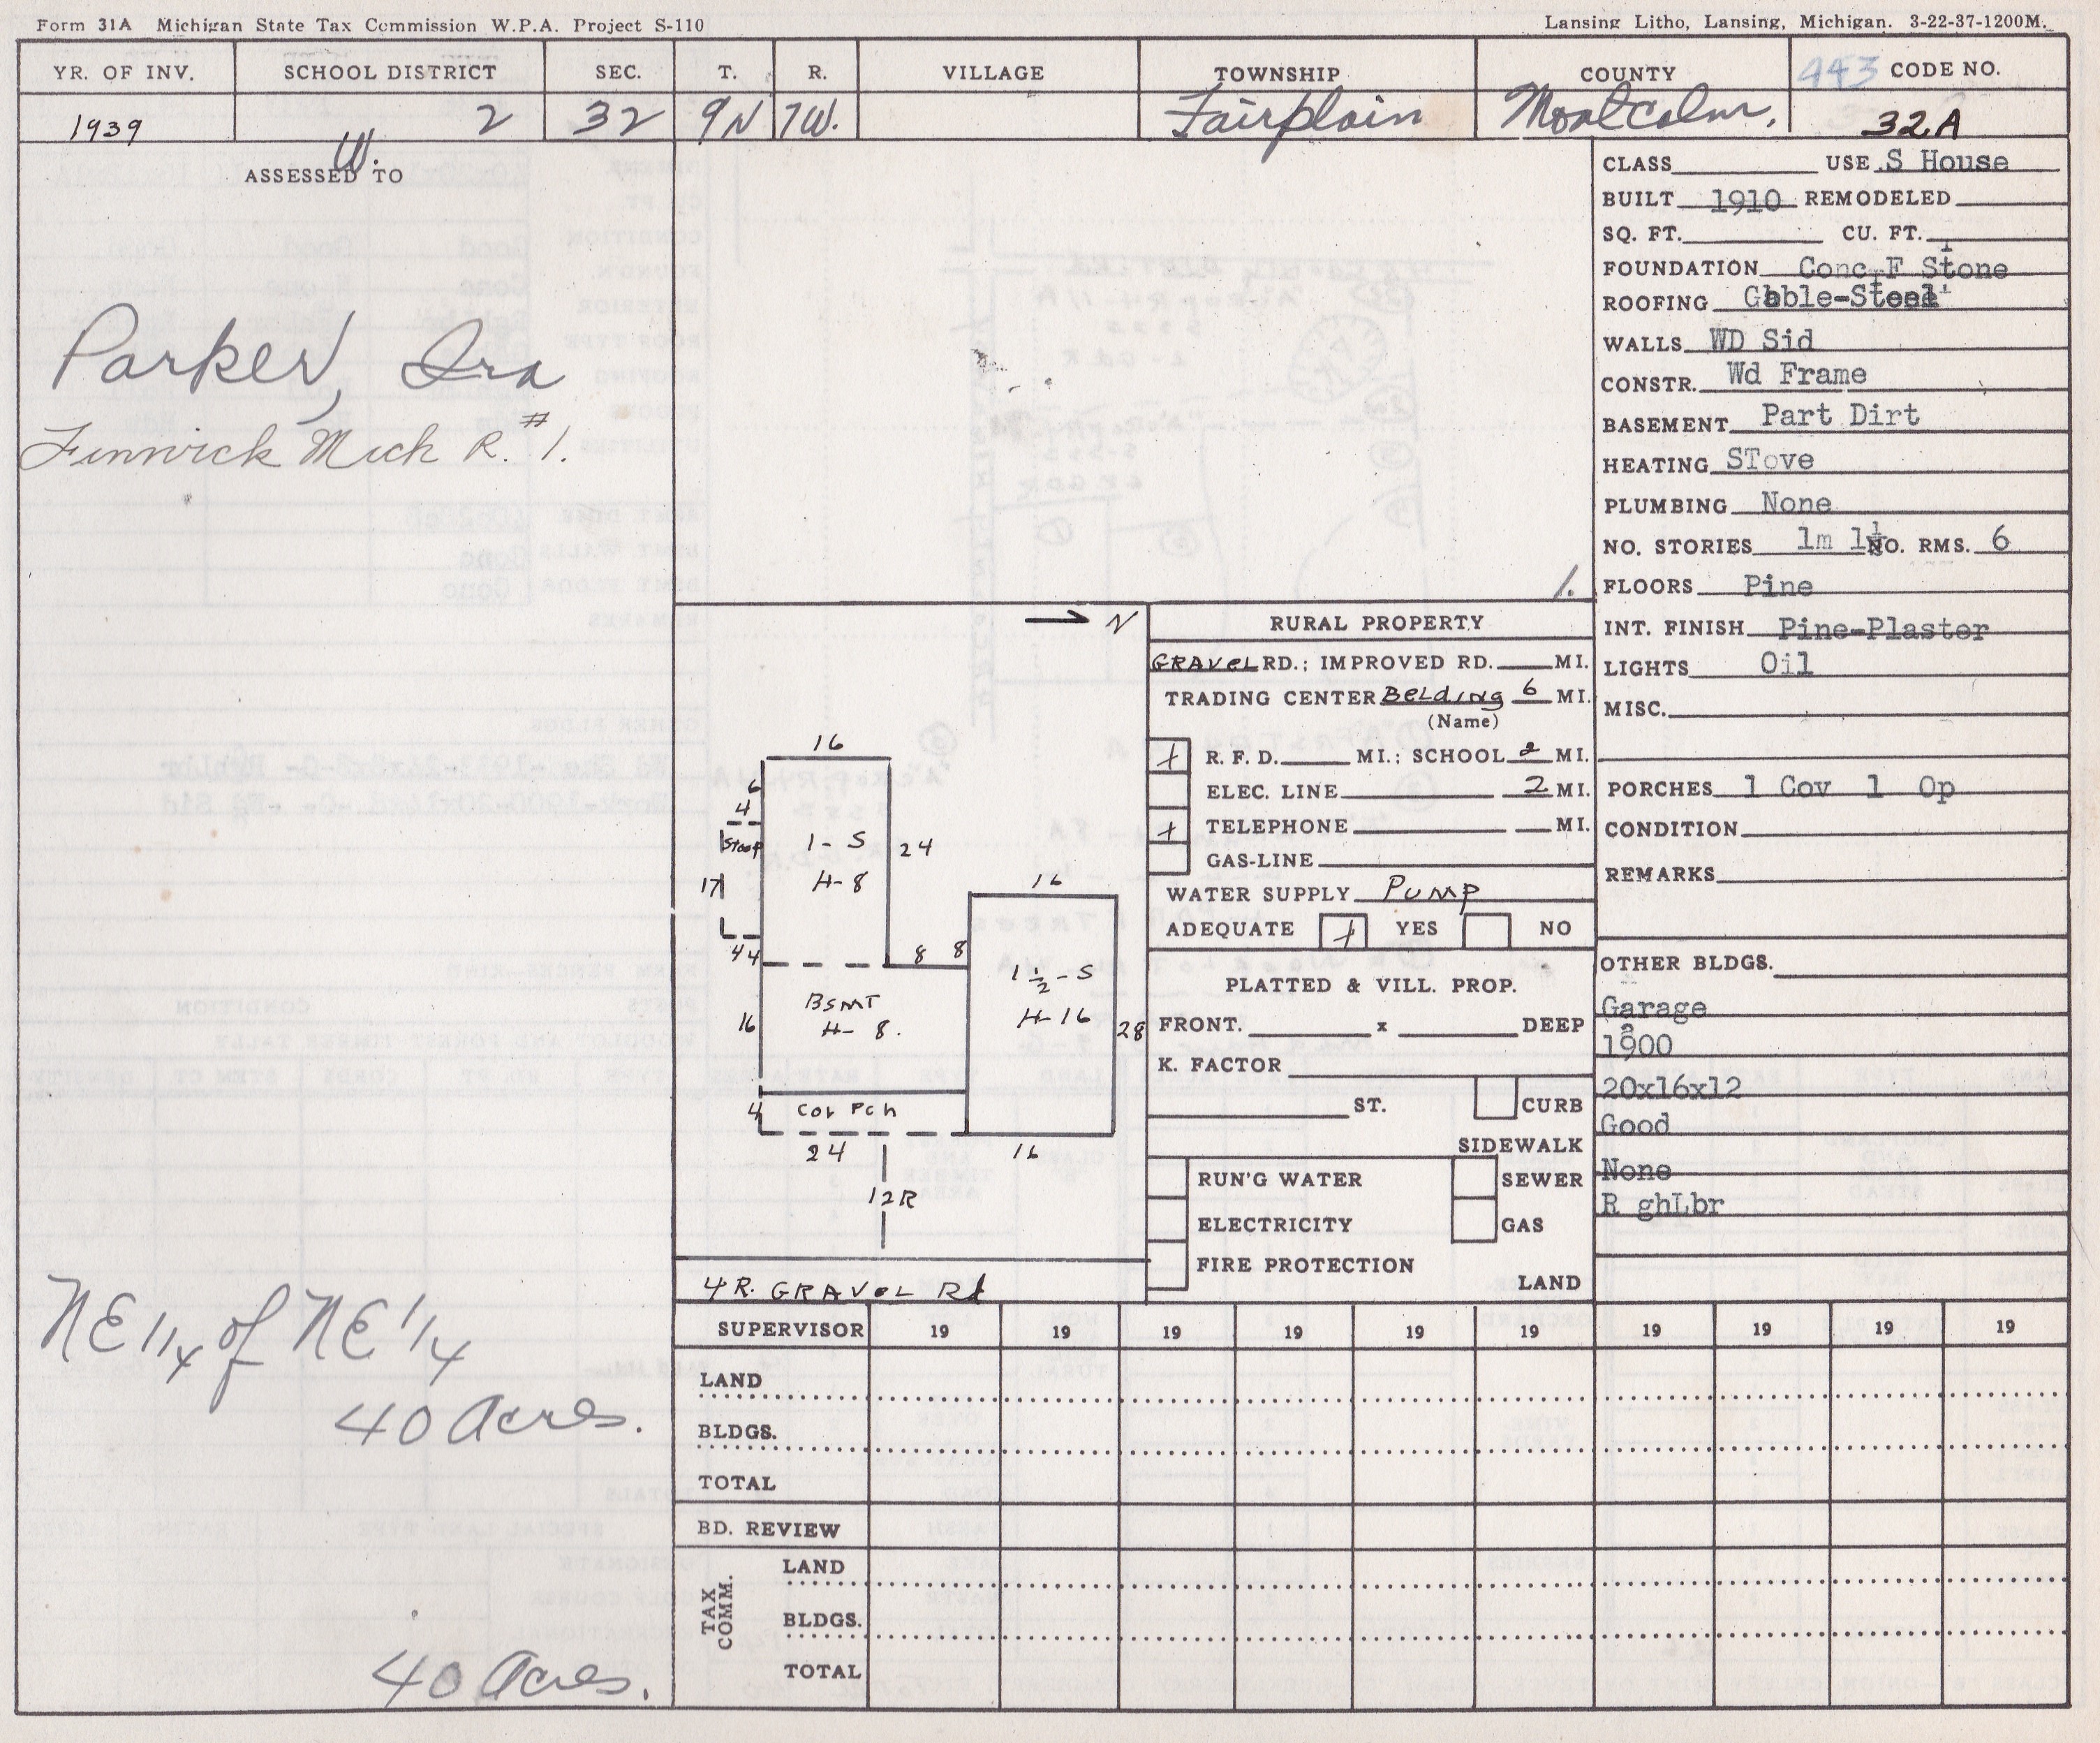 Form 31A Michigan State Tax Commission W.P.A. Project S-110
Lansing Litho, Lansing, Michigan. 3-22-37-1200M.
YR. OF INV. SCHOOL DISTRICT SEC. T. R. VILLAGE TOWNSHIP COUNTY 443 CODE NO.
1939 2 32 9N 7W. Fairplain Montcalm. 32A
W.
ASSESSED TO
Parker, Ira
Fenwick Mich R. #1.
NE 1/4 of NE 1/4
40 Acres.
40 Acres.
1.
→ N
16
6
4
Stoop
17
4 4
1-S
H-8
24
8 8
16
BSMT
H- 8.
16
1 1/2-S
H-16
28
4 Cov Pch
24 16
12R
4 R. GRAVEL Rd
RURAL PROPERTY
GRAVEL RD.; IMPROVED RD. MI.
TRADING CENTER Belding 6 MI.
(Name)
+ R. F. D. MI.; SCHOOL 2 MI.
ELEC. LINE 2 MI.
+ TELEPHONE MI.
GAS-LINE
WATER SUPPLY Pump
ADEQUATE + YES NO
PLATTED & VILL. PROP.
FRONT. x DEEP
K. FACTOR
ST. CURB
SIDEWALK
RUN'G WATER SEWER
ELECTRICITY GAS
FIRE PROTECTION
LAND
CLASS USE S House
BUILT 1910 REMODELED
SQ. FT. CU. FT.
FOUNDATION Conc-F Stone
ROOFING Gable-Steel
WALLS WD Sid
CONSTR. Wd Frame
BASEMENT Part Dirt
HEATING STove
PLUMBING None
NO. STORIES 1m 1½ NO. RMS. 6
FLOORS Pine
INT. FINISH Pine-Plaster
LIGHTS Oil
MISC.
PORCHES 1 Cov 1 Op
CONDITION
REMARKS
OTHER BLDGS.
Garage
1900
20x16x12
Good
None
R ghLbr
SUPERVISOR 19 19 19 19 19 19 19 19 19 19
LAND
BLDGS.
TOTAL
BD. REVIEW
TAX COMM.
LAND
BLDGS.
TOTAL